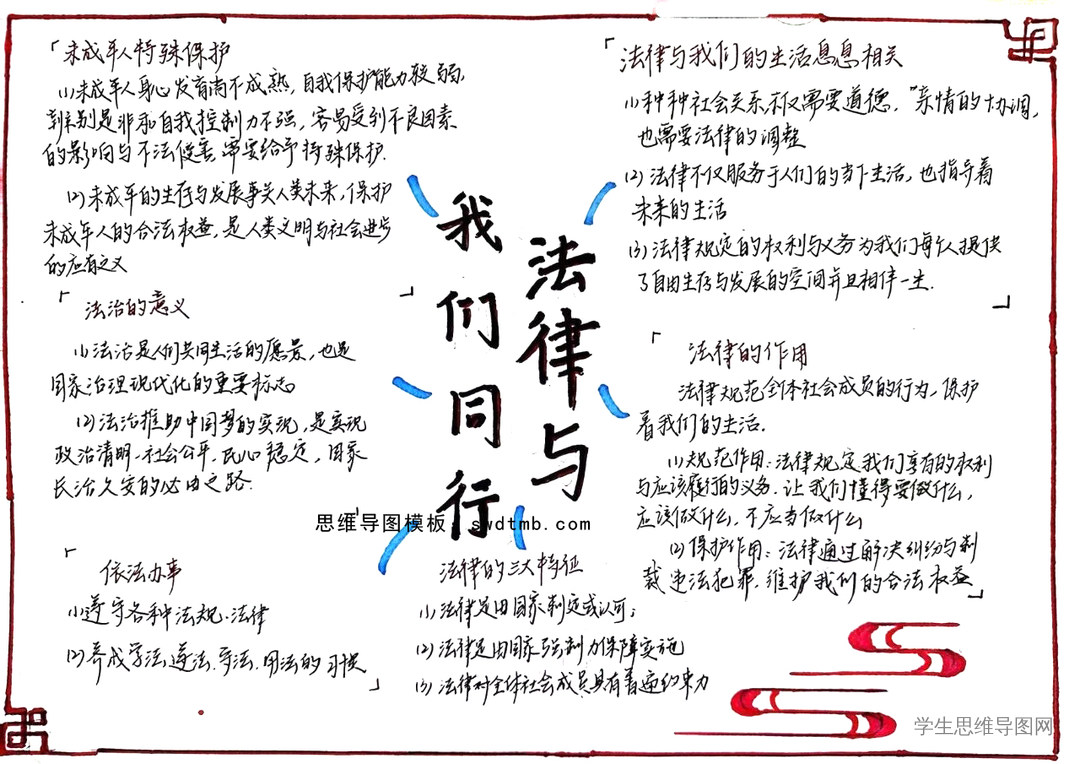 「未成年人特殊保护
(1)未成年人身心发育尚不成熟，自我保护能力较弱，
辨别是非和自我控制力不强，容易受到不良因素
的影响与不法侵害，需要给予特殊保护.
(2)未成年的生存与发展事关人类未来，保护
未成年人的合法权益，是人类文明与社会进步
的应有之义
「法治的意义
(1)法治是人们共同生活的愿景，也是
国家治理现代化的重要标志
(2)法治推助中国梦的实现，是实现
政治清明、社会公平，民心稳定，国家
长治久安的必由之路.
「依法办事
(1)遵守各种法规、法律
(2)养成学法、遵法、守法、用法的习惯」
法律与
我们同行
思维导图模板：swdtmb.com
法律的三大特征
(1)法律是由国家制定或认可；
(2)法律是由国家强制力保障实施
(3)法律对全体社会成员具有普遍约束力
「法律与我们的生活息息相关
(1)种种社会关系，不仅需要道德，亲情的协调，
也需要法律的调整
(2)法律不仅服务于人们的当下生活，也指导着
未来的生活
(3)法律规定的权利与义务为我们每个人提供
了自由生存与发展的空间并且相伴一生.」
「法律的作用
法律规范全体社会成员的行为，保护
着我们的生活.
(1)规范作用：法律规定我们享有的权利
与应该履行的义务，让我们懂得要做什么，
应该做什么，不应当做什么
(2)保护作用：法律通过解决纠纷与制
裁违法犯罪，维护我们的合法权益」
学生思维导图网